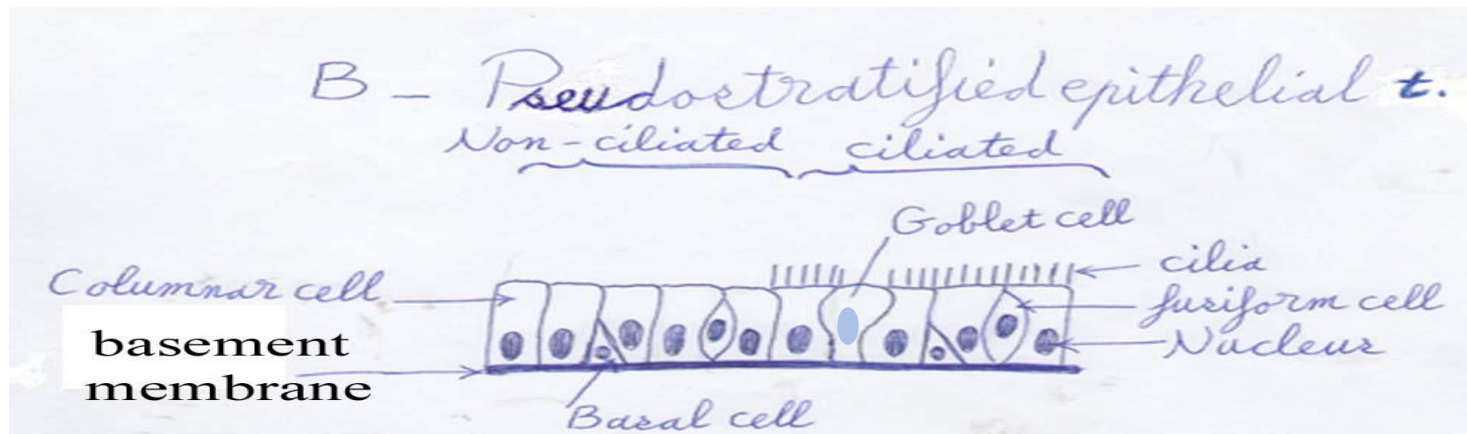 B - Pseudostratified epithelial t.
Non-ciliated ciliated
Goblet cell
Columnar cell
cilia
fusiform cell
basement
membrane
Nucleus
Basal cell